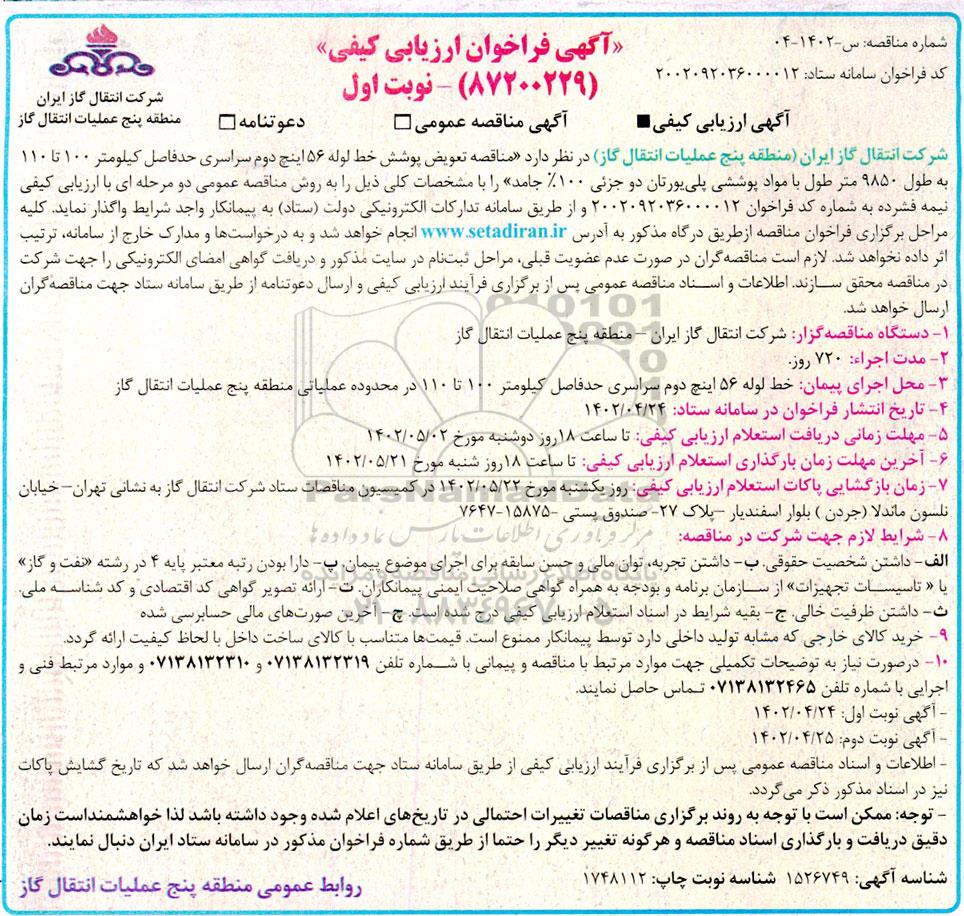 شماره مناقصه: س-۱۴۰۲-۰۴
کد فراخوان سامانه ستاد: ۲۰۰۲۰۹۲۰۳۶۰۰۰۰۱۲
«آگهی فراخوان ارزیابی کیفی»
(۸۷۲۰۰۲۲۹) – نوبت اول
شرکت انتقال گاز ایران
منطقه پنج عملیات انتقال گاز
آگهی ارزیابی کیفی ■ آگهی مناقصه عمومی □ دعوتنامه □
شرکت انتقال گاز ایران (منطقه پنج عملیات انتقال گاز) در نظر دارد «مناقصه تعویض پوشش خط لوله ۵۶ اینچ دوم سراسری حدفاصل کیلومتر ۱۰۰ تا ۱۱۰
به طول ۹۸۵۰ متر طول با مواد پوششی پلی‌یورتان دو جزئی ۱۰۰٪ جامد» را با مشخصات کلی ذیل را به روش مناقصه عمومی دو مرحله ای با ارزیابی کیفی
نیمه فشرده به شماره کد فراخوان ۲۰۰۲۰۹۲۰۳۶۰۰۰۰۱۲ و از طریق سامانه تدارکات الکترونیکی دولت (ستاد) به پیمانکار واجد شرایط واگذار نماید. کلیه
مراحل برگزاری فراخوان مناقصه ازطریق درگاه مذکور به آدرس www.setadiran.ir انجام خواهد شد و به درخواست‌ها و مدارک خارج از سامانه، ترتیب
اثر داده نخواهد شد. لازم است مناقصه‌گران در صورت عدم عضویت قبلی، مراحل ثبت‌نام در سایت مذکور و دریافت گواهی امضای الکترونیکی را جهت شرکت
در مناقصه محقق سازند. اطلاعات و اسناد مناقصه عمومی پس از برگزاری فرآیند ارزیابی کیفی و ارسال دعوتنامه از طریق سامانه ستاد جهت مناقصه‌گران
ارسال خواهد شد.
۱- دستگاه مناقصه‌گزار: شرکت انتقال گاز ایران – منطقه پنج عملیات انتقال گاز
۲- مدت اجراء: ۷۲۰ روز.
۳- محل اجرای پیمان: خط لوله ۵۶ اینچ دوم سراسری حدفاصل کیلومتر ۱۰۰ تا ۱۱۰ در محدوده عملیاتی منطقه پنج عملیات انتقال گاز
۴- تاریخ انتشار فراخوان در سامانه ستاد: ۱۴۰۲/۰۴/۲۴
۵- مهلت زمانی دریافت استعلام ارزیابی کیفی: تا ساعت ۱۸روز دوشنبه مورخ ۱۴۰۲/۰۵/۰۲
۶- آخرین مهلت زمان بارگذاری استعلام ارزیابی کیفی: تا ساعت ۱۸روز شنبه مورخ ۱۴۰۲/۰۵/۲۱
۷- زمان بازگشایی پاکات استعلام ارزیابی کیفی: روز یکشنبه مورخ ۱۴۰۲/۰۵/۲۲ در کمیسیون مناقصات ستاد شرکت انتقال گاز به نشانی تهران–خیابان
نلسون ماندلا (جردن ) بلوار اسفندیار –پلاک ۲۷- صندوق پستی -۱۵۸۷۵-۷۶۴۷
۸- شرایط لازم جهت شرکت در مناقصه:
الف- داشتن شخصیت حقوقی. ب- داشتن تجربه، توان مالی و حسن سابقه برای اجرای موضوع پیمان. پ- دارا بودن رتبه معتبر پایه ۴ در رشته «نفت و گاز»
یا « تاسیسات تجهیزات» از سازمان برنامه و بودجه به همراه گواهی صلاحیت ایمنی پیمانکاران. ت- ارائه تصویر گواهی کد اقتصادی و کد شناسه ملی.
ث- داشتن ظرفیت خالی. ج- بقیه شرایط در اسناد استعلام ارزیابی کیفی درج شده است. چ-آخرین صورت‌های مالی حسابرسی شده
۹- خرید کالای خارجی که مشابه تولید داخلی دارد توسط پیمانکار ممنوع است. قیمت‌ها متناسب با کالای ساخت داخل با لحاظ کیفیت ارائه گردد.
۱۰- درصورت نیاز به توضیحات تکمیلی جهت موارد مرتبط با مناقصه و پیمانی با شماره تلفن ۰۷۱۳۸۱۳۲۳۱۹ و ۰۷۱۳۸۱۳۲۳۱۰ و موارد مرتبط فنی و
اجرایی با شماره تلفن ۰۷۱۳۸۱۳۲۴۶۵ تماس حاصل نمایند.
- آگهی نوبت اول: ۱۴۰۲/۰۴/۲۴
- آگهی نوبت دوم: ۱۴۰۲/۰۴/۲۵
- اطلاعات و اسناد مناقصه عمومی پس از برگزاری فرآیند ارزیابی کیفی از طریق سامانه ستاد جهت مناقصه‌گران ارسال خواهد شد که تاریخ گشایش پاکات
نیز در اسناد مذکور ذکر می‌گردد.
- توجه: ممکن است با توجه به روند برگزاری مناقصات تغییرات احتمالی در تاریخ‌های اعلام شده وجود داشته باشد لذا خواهشمنداست زمان
دقیق دریافت و بارگذاری اسناد مناقصه و هرگونه تغییر دیگر را حتما از طریق شماره فراخوان مذکور در سامانه ستاد ایران دنبال نمایند.
شناسه آگهی: ۱۵۲۶۷۴۹ شناسه نوبت چاپ: ۱۷۴۸۱۱۲
روابط عمومی منطقه پنج عملیات انتقال گاز